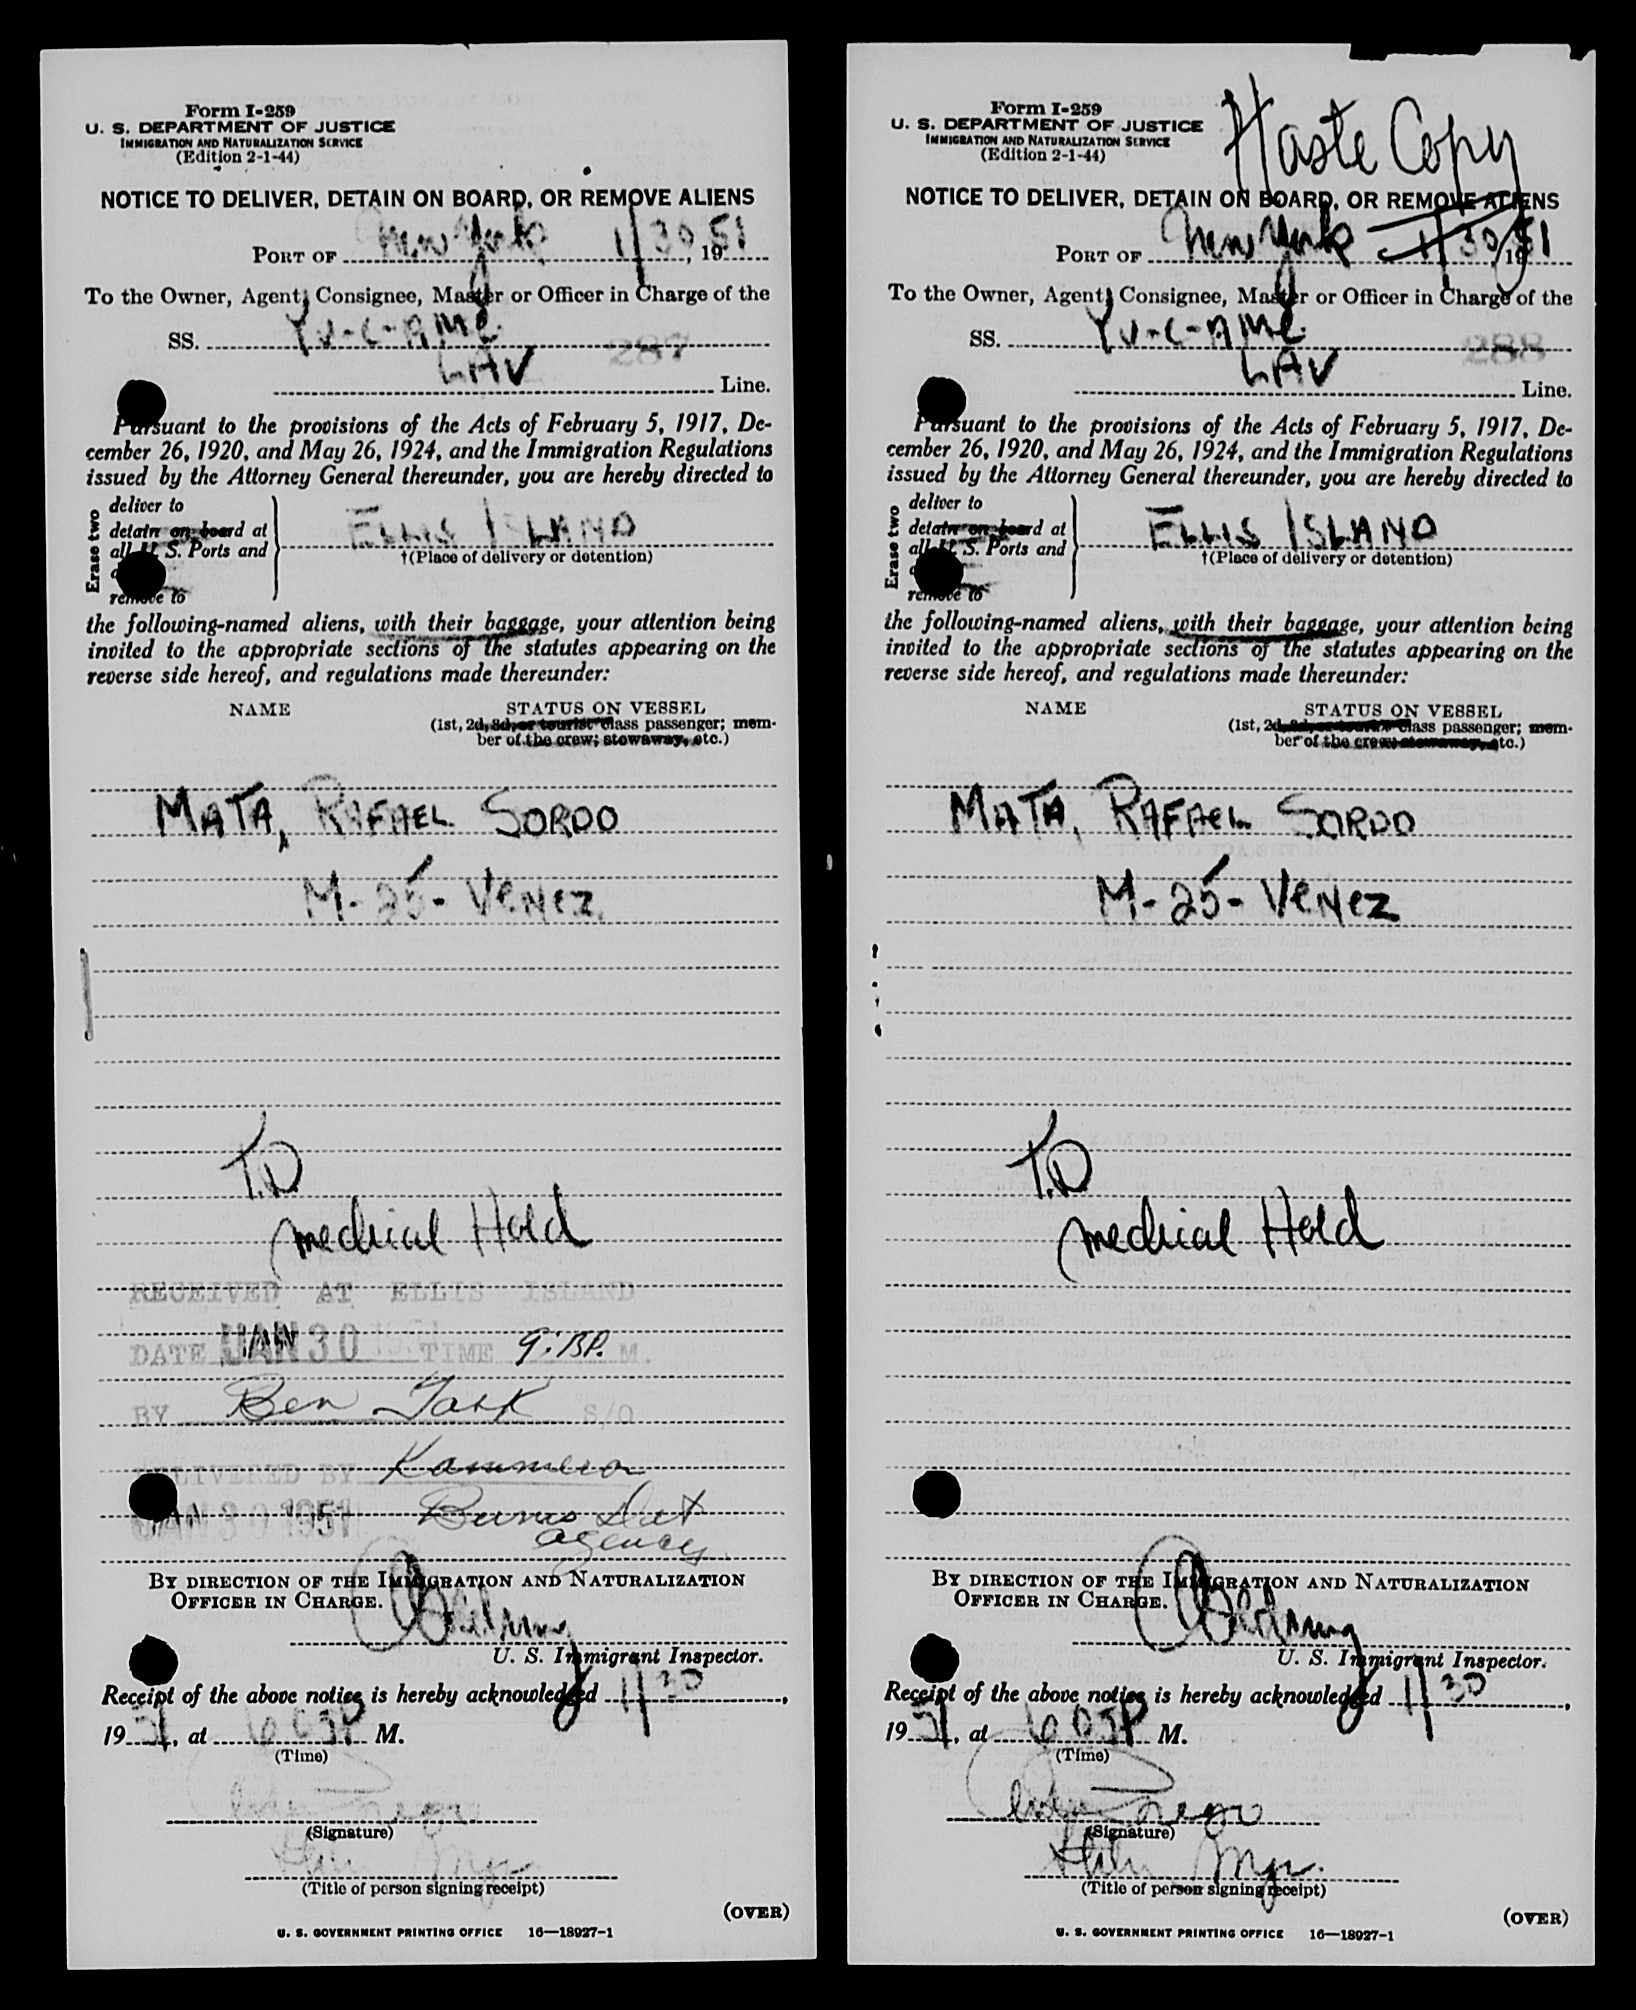 Form I-259
U. S. DEPARTMENT OF JUSTICE
IMMIGRATION AND NATURALIZATION SERVICE
(Edition 2-1-44)
NOTICE TO DELIVER, DETAIN ON BOARD, OR REMOVE ALIENS
PORT OF New York 1/30, 1951
To the Owner, Agent, Consignee, Master or Officer in Charge of the
SS. YV-C-AME 287
LAV Line.
Pursuant to the provisions of the Acts of February 5, 1917, De-
cember 26, 1920, and May 26, 1924, and the Immigration Regulations
issued by the Attorney General thereunder, you are hereby directed to
Erase two
deliver to
detain on board at
all U. S. Ports and
remove to
ELLIS ISLAND
†(Place of delivery or detention)
the following-named aliens, with their baggage, your attention being
invited to the appropriate sections of the statutes appearing on the
reverse side hereof, and regulations made thereunder:
NAME STATUS ON VESSEL
(1st, 2d, 3d, or tourist class passenger; mem-
ber of the crew; stowaway, etc.)
MATA, RAFAEL SORDO
M-25-VENEZ.
T.D
medical Hold
RECEIVED AT ELLIS ISLAND
DATE JAN 30 1951 TIME M.
BY Ben S/O
DELIVERED BY
JAN 30 1951 Burns Det
agency
BY DIRECTION OF THE IMMIGRATION AND NATURALIZATION
OFFICER IN CHARGE.
U. S. Immigrant Inspector.
Receipt of the above notice is hereby acknowledged 1/30,
1951, at M.
(Time)
(Signature)
Mgr.
(Title of person signing receipt)
(OVER)
U. S. GOVERNMENT PRINTING OFFICE 16—18927-1
Form I-259
U. S. DEPARTMENT OF JUSTICE
IMMIGRATION AND NATURALIZATION SERVICE
(Edition 2-1-44)
Haste Copy
NOTICE TO DELIVER, DETAIN ON BOARD, OR REMOVE ALIENS
PORT OF New York 1/30, 1951
To the Owner, Agent, Consignee, Master or Officer in Charge of the
SS. YV-C-AME 288
LAV Line.
Pursuant to the provisions of the Acts of February 5, 1917, De-
cember 26, 1920, and May 26, 1924, and the Immigration Regulations
issued by the Attorney General thereunder, you are hereby directed to
Erase two
deliver to
detain on board at
all U. S. Ports and
remove to
ELLIS ISLAND
†(Place of delivery or detention)
the following-named aliens, with their baggage, your attention being
invited to the appropriate sections of the statutes appearing on the
reverse side hereof, and regulations made thereunder:
NAME STATUS ON VESSEL
(1st, 2d, 3d, or tourist class passenger; mem-
ber of the crew; stowaway, etc.)
MATA, RAFAEL SORDO
M-25-VENEZ
T.D
medical Hold
BY DIRECTION OF THE IMMIGRATION AND NATURALIZATION
OFFICER IN CHARGE.
U. S. Immigrant Inspector.
Receipt of the above notice is hereby acknowledged 1/30,
1951, at M.
(Time)
(Signature)
Mgr.
(Title of person signing receipt)
(OVER)
U. S. GOVERNMENT PRINTING OFFICE 16—18927-1